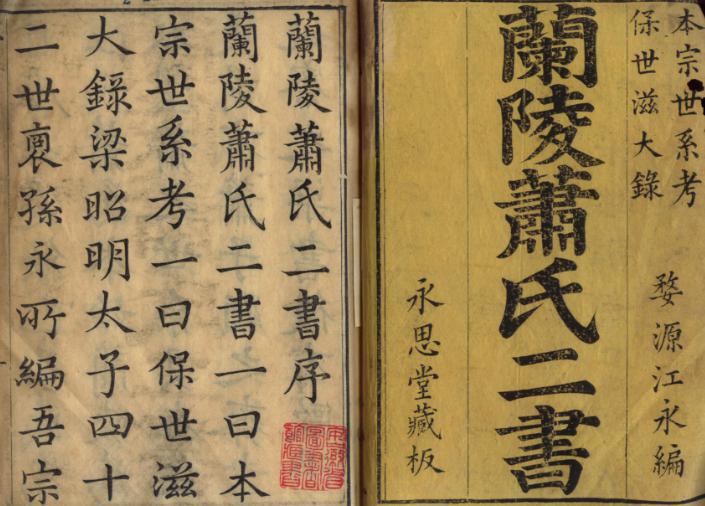 本宗世系考
保世滋大錄
婺源江永編
蘭陵蕭氏二書
永思堂藏板
蘭陵蕭氏二書序
蘭陵蕭氏二書一曰本
宗世系考一曰保世滋
大錄梁昭明太子四十
二世裔孫永所編吾宗